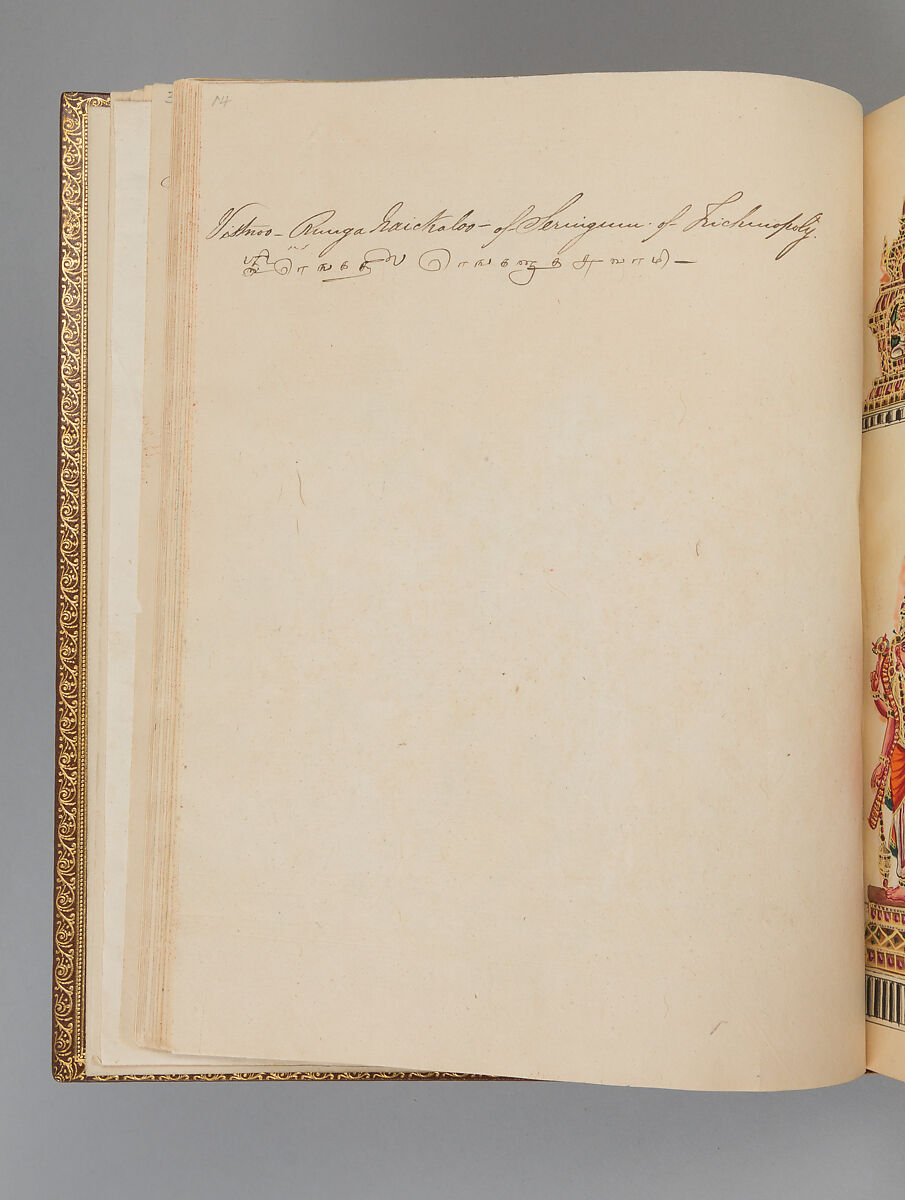 14
Vistnoo - Runga Naickaloo - of Seringum. of Trichinopoly.
ஸ்ரீரங்கத்தில் ரெங்கனாத சுவாமி —